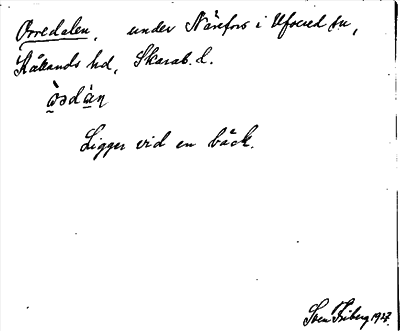 Orredalen, under Närefors i Ufvered sn,
Kållands hd, Skarab. l.
òrdàn
Ligger vid en bäck.
Sven Friberg 1927.